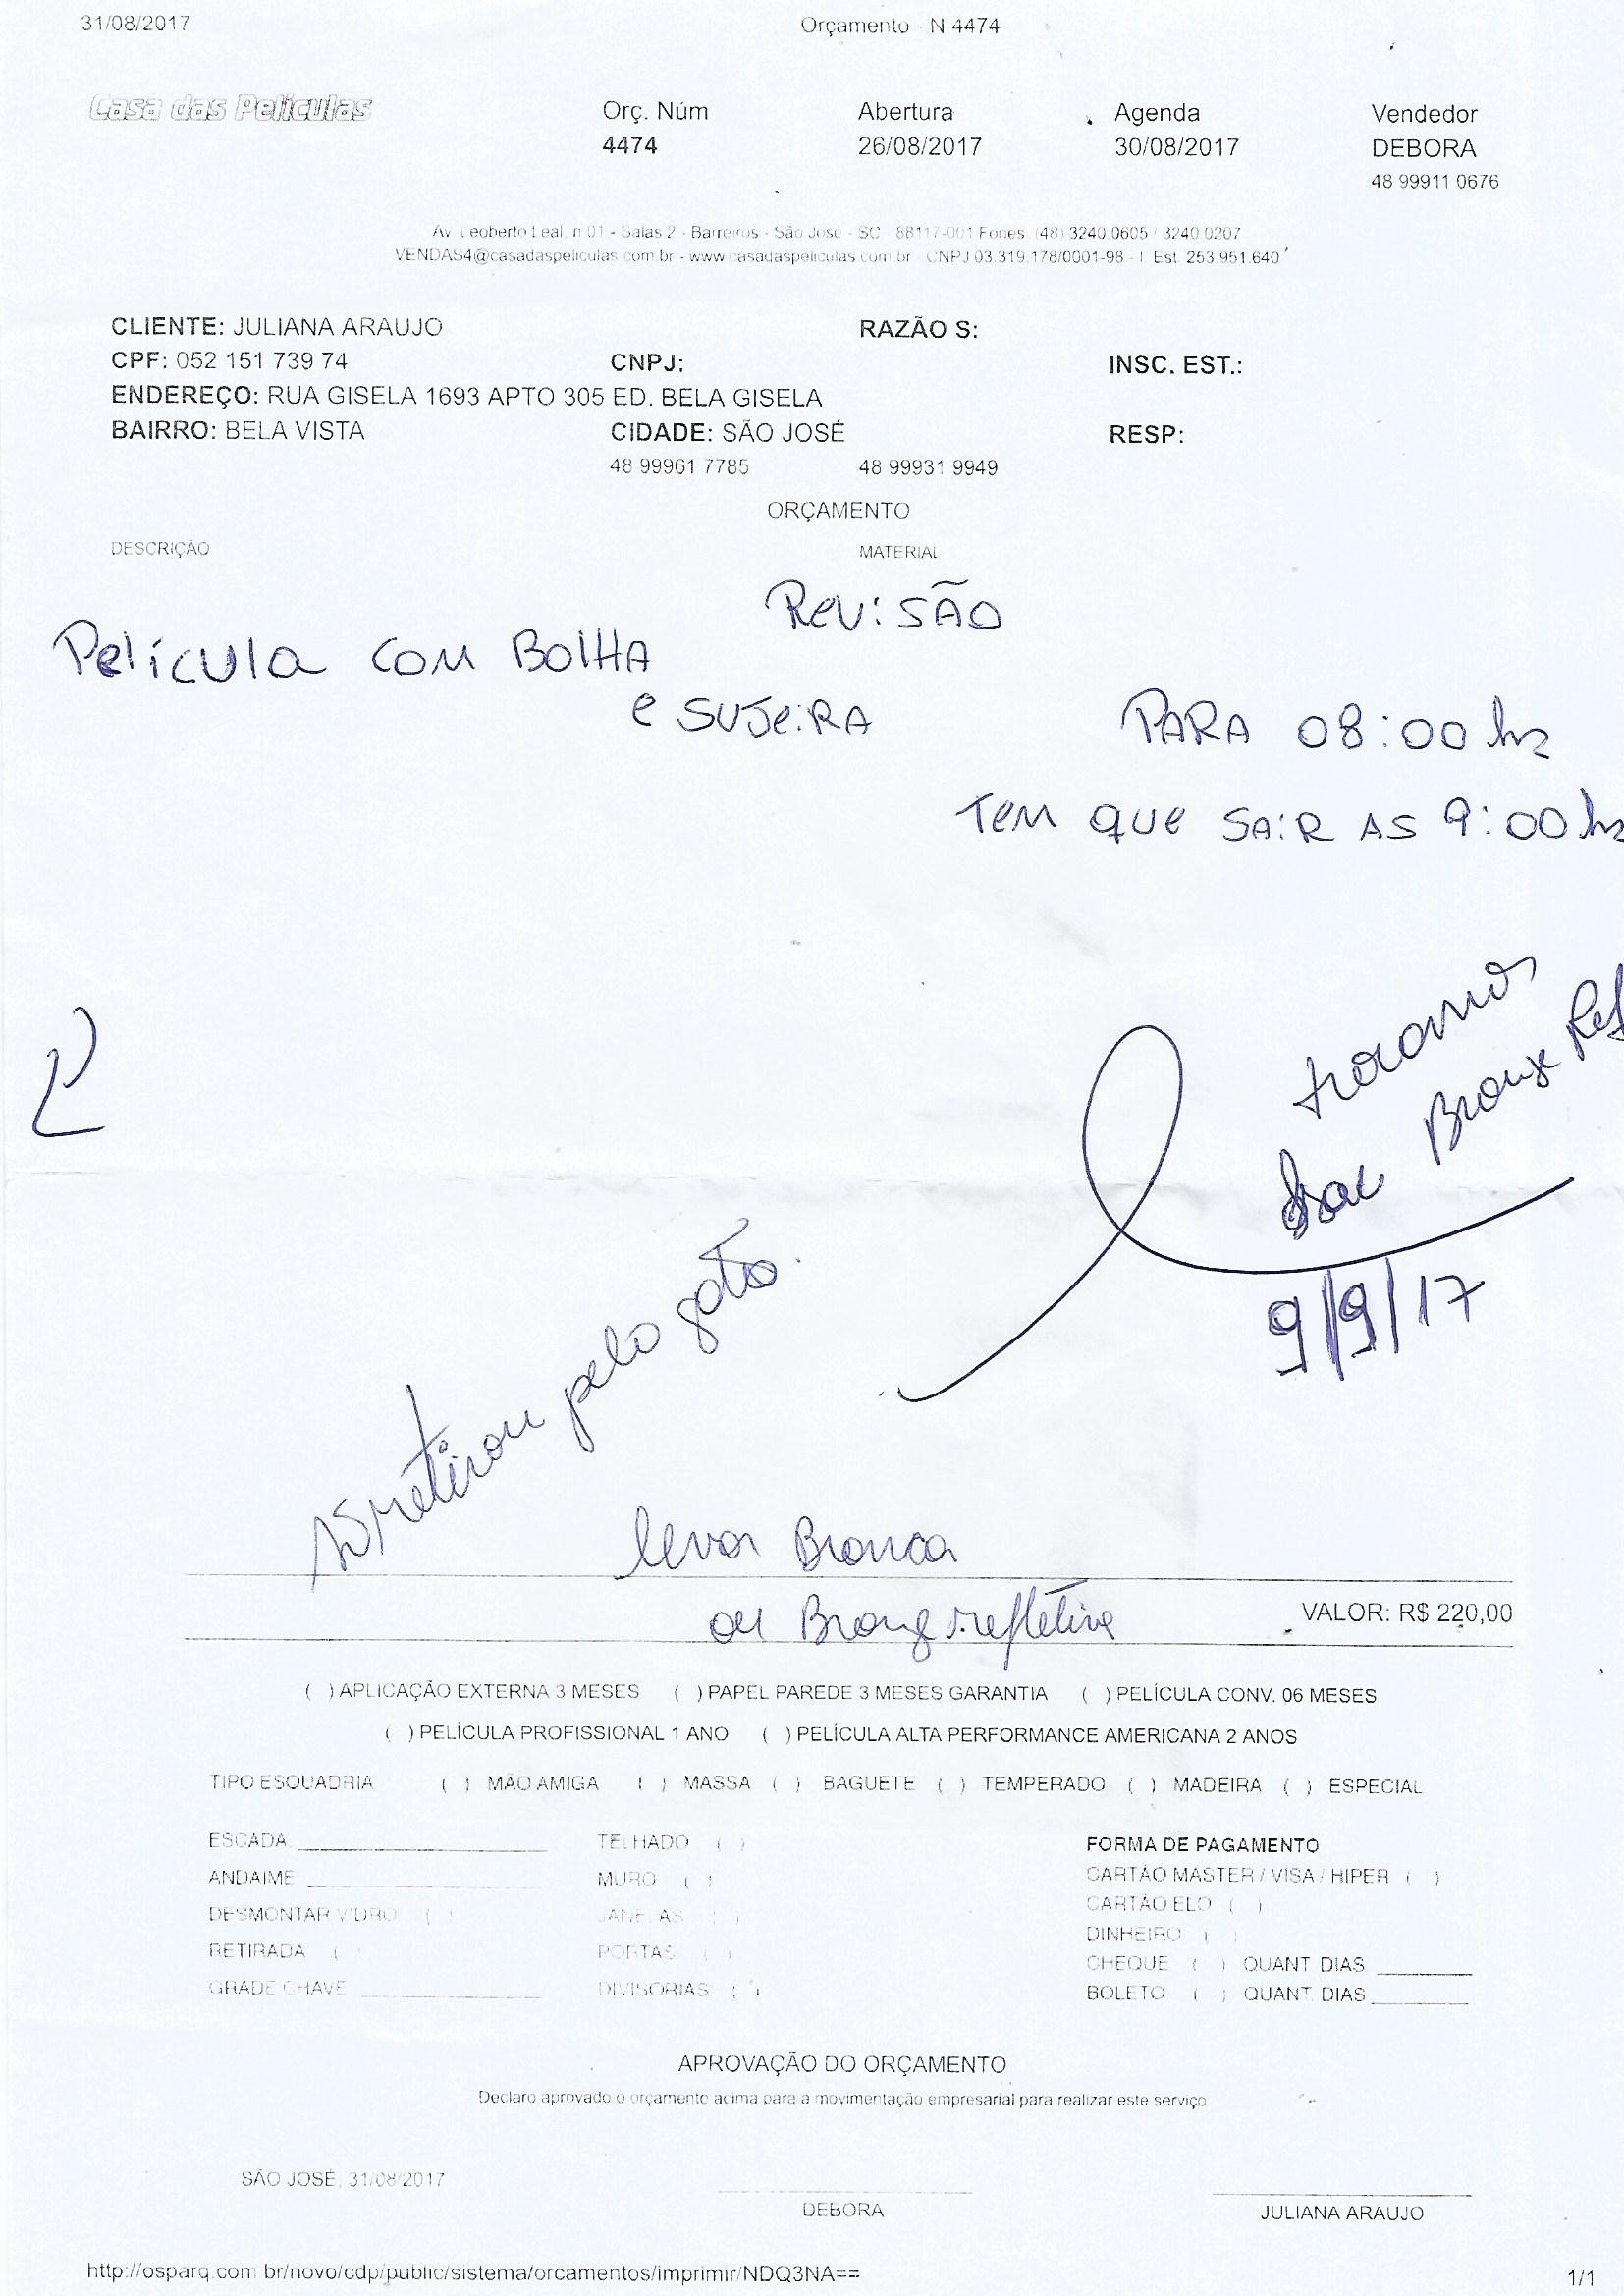 31/08/2017 Orçamento - N 4474
Casa das Películas Orç. Núm Abertura Agenda Vendedor
4474 26/08/2017 30/08/2017 DEBORA
48 99911 0676
Av. Leoberto Leal, n 01 - Salas 2 - Barreiros - São José - SC 88117-001 Fones: (48) 3240 0605 / 3240 0207
VENDAS4@casadaspeliculas.com.br - www.casadaspeliculas.com.br CNPJ 03.319.178/0001-98 - I. Est. 253.951.640
CLIENTE: JULIANA ARAUJO RAZÃO S:
CPF: 052 151 739 74 CNPJ: INSC. EST.:
ENDEREÇO: RUA GISELA 1693 APTO 305 ED. BELA GISELA
BAIRRO: BELA VISTA CIDADE: SÃO JOSÉ RESP:
48 99961 7785 48 99931 9949
ORÇAMENTO
DESCRIÇÃO MATERIAL
Revisão
Película com Bolha
e sujeira
PARA 08:00 hs
Tem que sair as 9:00 hs
Bronze Ref
9/9/17
retirou pelo
levar Branca
ou Bronze refletiva
VALOR: R$ 220,00
( ) APLICAÇÃO EXTERNA 3 MESES ( ) PAPEL PAREDE 3 MESES GARANTIA ( ) PELÍCULA CONV. 06 MESES
( ) PELÍCULA PROFISSIONAL 1 ANO ( ) PELÍCULA ALTA PERFORMANCE AMERICANA 2 ANOS
TIPO ESQUADRIA ( ) MÃO AMIGA ( ) MASSA ( ) BAGUETE ( ) TEMPERADO ( ) MADEIRA ( ) ESPECIAL
ESCADA TELHADO ( ) FORMA DE PAGAMENTO
ANDAIME MURO ( ) CARTÃO MASTER / VISA / HIPER ( )
DESMONTAR VIDRO ( ) JANELAS ( ) CARTÃO ELO ( )
RETIRADA ( ) PORTAS ( ) DINHEIRO ( )
GRADE CHAVE DIVISORIAS ( ) CHEQUE ( ) QUANT DIAS
BOLETO ( ) QUANT. DIAS
APROVAÇÃO DO ORÇAMENTO
Declaro aprovado o orçamento acima para a movimentação empresarial para realizar este serviço
SÃO JOSÉ, 31/08/2017
DEBORA JULIANA ARAUJO
http://osparq.com.br/novo/cdp/public/sistema/orcamentos/imprimir/NDQ3NA== 1/1